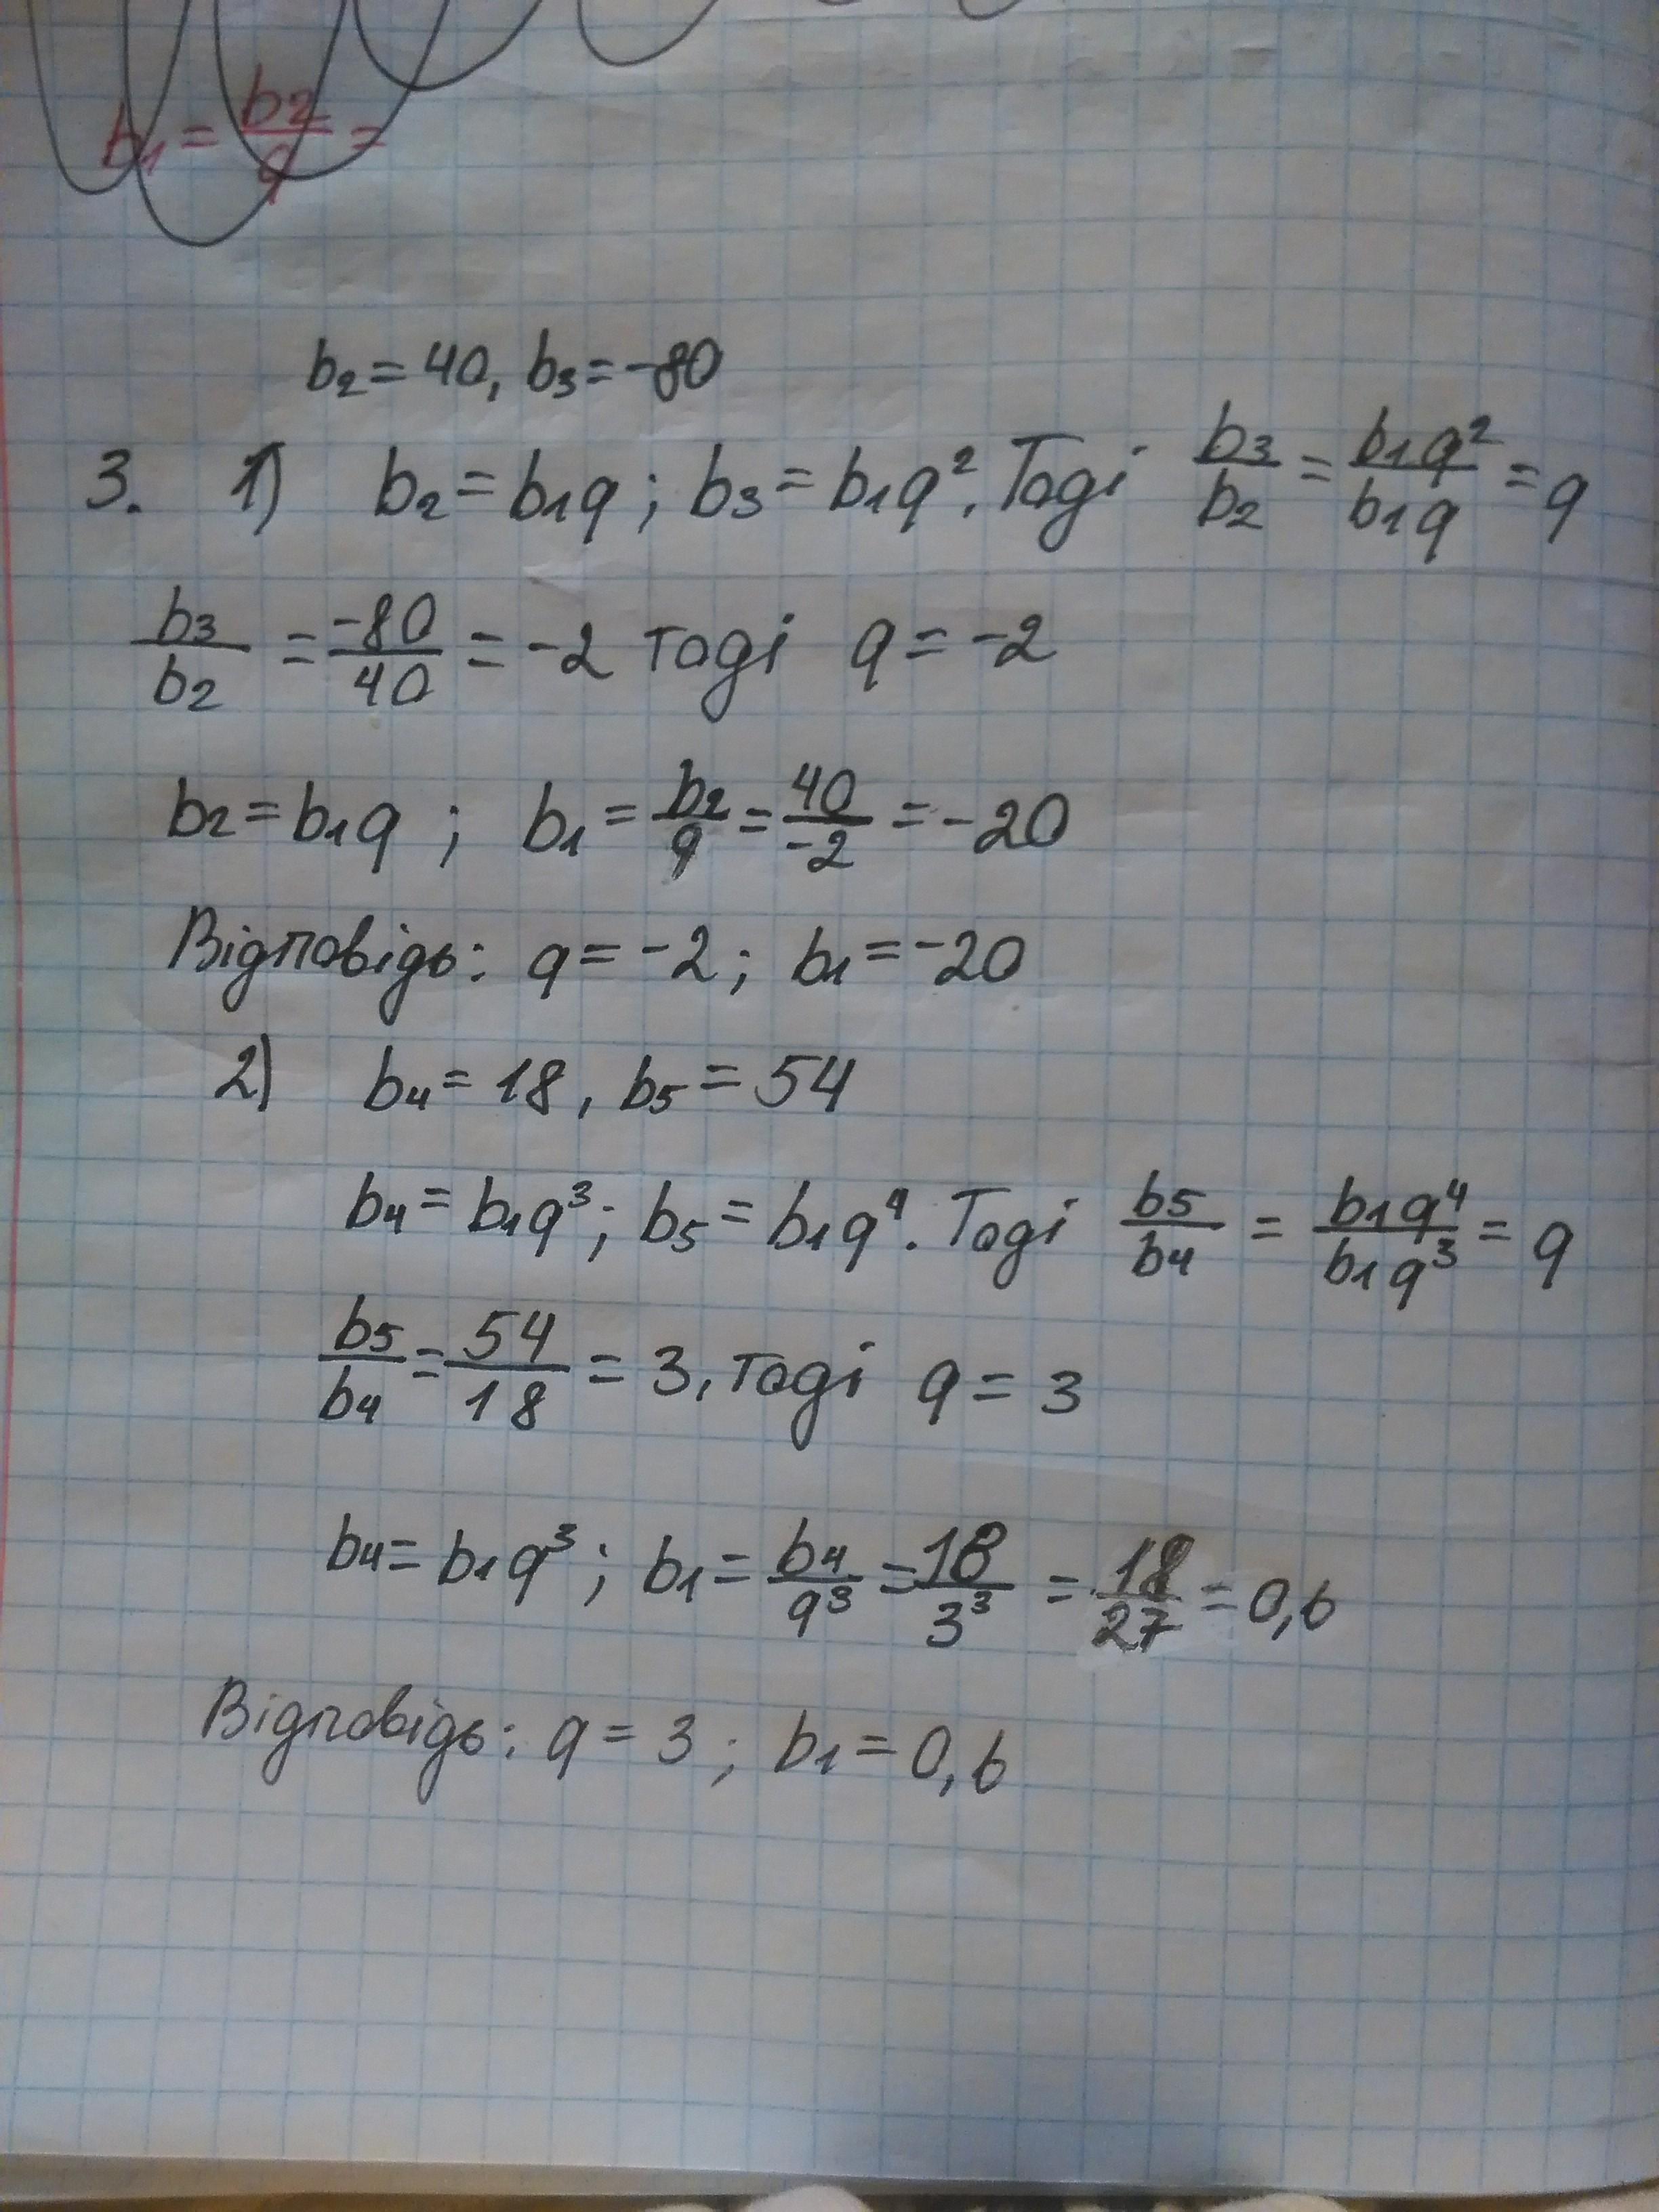 b₁ = b₂/q =
b₂ = 40, b₃ = -80
3. 1) b₂ = b₁q ; b₃ = b₁q². Тоді b₃/b₂ = b₁q²/b₁q = q
b₃/b₂ = -80/40 = -2 тоді q = -2
b₂ = b₁q ; b₁ = b₂/q = 40/-2 = -20
Відповідь: q = -2 ; b₁ = -20
2) b₄ = 18, b₅ = 54
b₄ = b₁q³; b₅ = b₁q⁴. Тоді b₅/b₄ = b₁q⁴/b₁q³ = q
b₅/b₄ = 54/18 = 3, тоді q = 3
b₄ = b₁q³ ; b₁ = b₄/q³ = 18/3³ = 18/27 = 0,6
Відповідь: q = 3 ; b₁ = 0,6